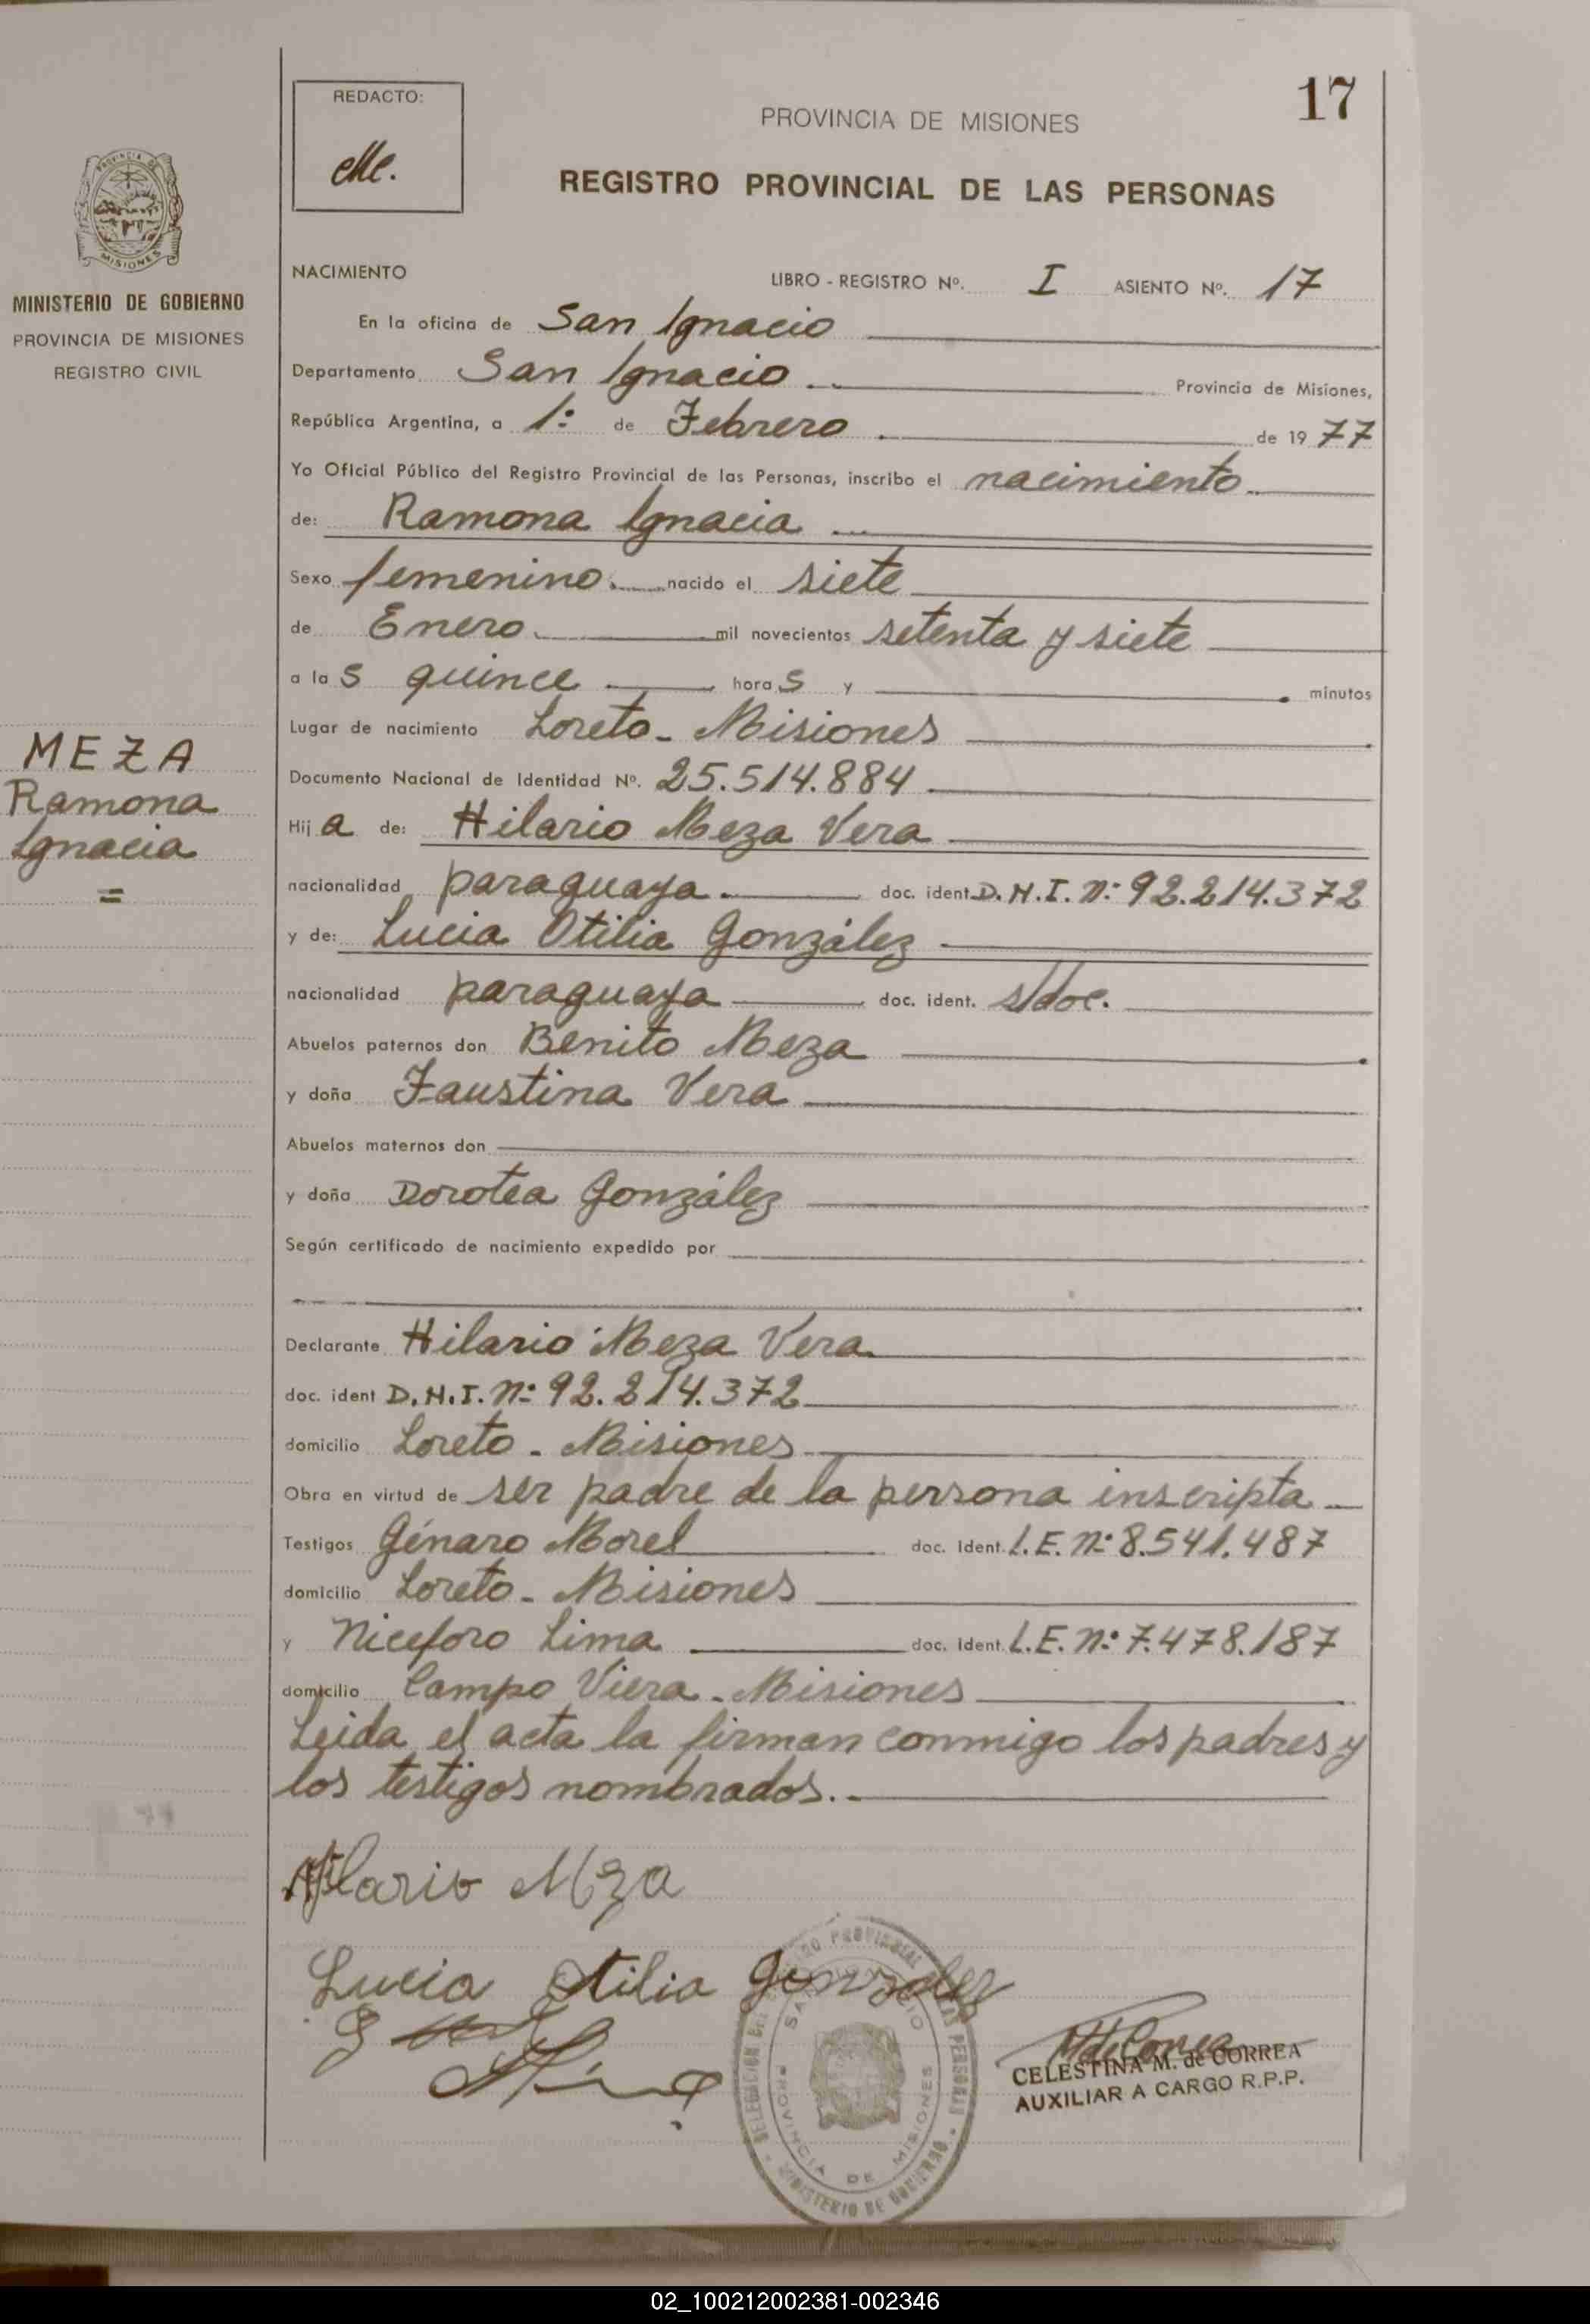 17
REDACTO:
PROVINCIA DE MISIONES
REGISTRO PROVINCIAL DE LAS PERSONAS
PROVINCIA DE
MISIONES
MINISTERIO DE GOBIERNO
PROVINCIA DE MISIONES
REGISTRO CIVIL
NACIMIENTO LIBRO - REGISTRO Nº. I ASIENTO Nº. 17
En la oficina de San Ignacio
Departamento San Ignacio Provincia de Misiones,
República Argentina, a 1º de Febrero de 1977
Yo Oficial Público del Registro Provincial de las Personas, inscribo el nacimiento
de: Ramona Ignacia
Sexo femenino. nacido el siete
de Enero. mil novecientos setenta y siete
a las quince horas y minutos
Lugar de nacimiento Loreto - Misiones
MEZA
Ramona
Ignacia
=
Documento Nacional de Identidad Nº. 25.514.884
Hija de: Hilario Meza Vera
nacionalidad paraguaya. doc. ident. D.N.I. nº 92.214.372
y de: Lucia Otilia González
nacionalidad paraguaya doc. ident. s/doc.
Abuelos paternos don Benito Meza
y doña Faustina Vera
Abuelos maternos don
y doña Dorotea González
Según certificado de nacimiento expedido por
Declarante Hilario Meza Vera
doc. ident D.N.I. nº 92.214.372
domicilio Loreto - Misiones
Obra en virtud de ser padre de la persona inscripta
Testigos Génaro Morel doc. Ident. L.E. nº 8.541.487
domicilio Loreto - Misiones
y Niceforo Lima doc. Ident. L.E. nº 7.478.187
domicilio Campo Viera - Misiones
Leida el acta la firman conmigo los padres y
los testigos nombrados.-
Hilario Mza
Lucia Otilia Gonzalez
DELEGACION DEL REGISTRO PROVINCIAL DE LAS PERSONAS
SAN IGNACIO
PROVINCIA DE MISIONES
MINISTERIO DE GOBIERNO
CELESTINA M. de CORREA
AUXILIAR A CARGO R.P.P.
02_100212002381-002346